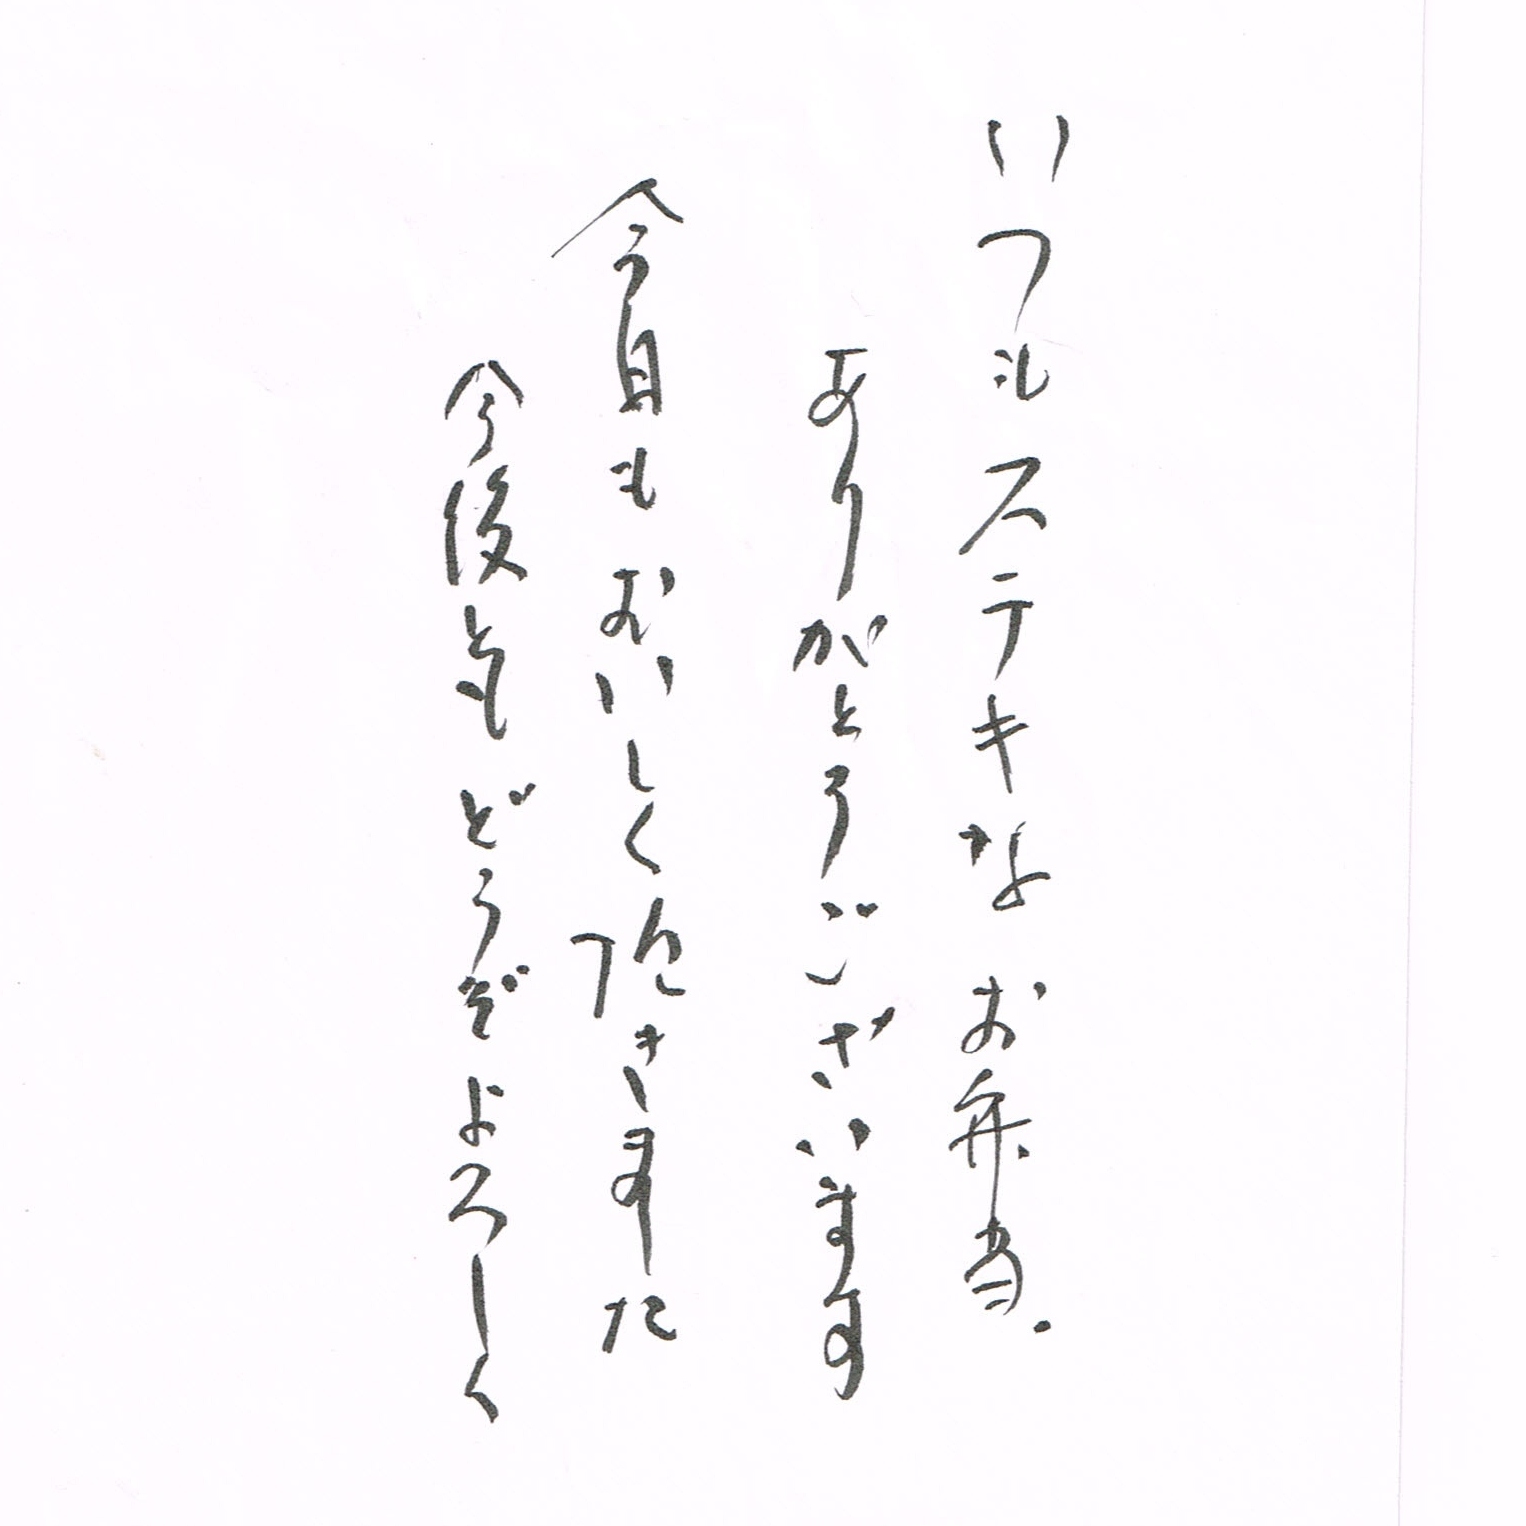 いつもステキなお弁当.
ありがとうございます
今日もおいしく頂きました
今後ともどうぞよろしく